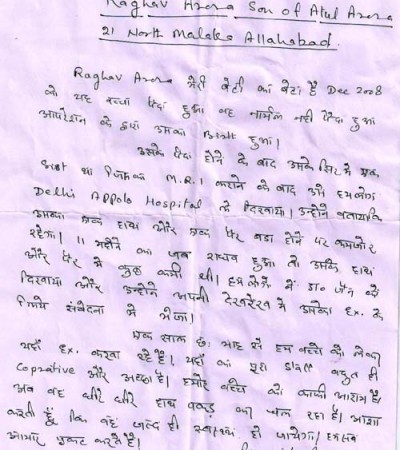 Raghav Arora Son of Atul Arora
21 North Malaka Allahabad.
Raghav Arora मेरी बेटी का बेटा है Dec 2008
को यह बच्चा पैदा हुआ वह नार्मल नही पैदा हुआ
आपरेशन के द्वारा उसका Birth हुआ।
उसके पैदा होने के बाद उसके सिर में एक
था जिसका M.R.I कराने के बाद उसे हमलोग
Delhi Appolo Hospital में दिखाया। उन्होंने बताया कि
उसका एक हाथ और एक पैर बडा होने पर कमजोर
रहेगा। 11 महीने का जब राघव हुआ तो उसके हाथ
और पैर में कुछ कमी थी। हम लोगों ने डा० जैन को
दिखाया और उन्होंने अपनी देखरेख में उसको Ex. के
लिये संवेदना में भेजा।
एक साल छः माह से हम बच्चे को लेकर
यहाँ Ex. करवा रहे हैं। यहाँ का पूरा स्टाफ बहुत ही
Coprative और अच्छा है। हमारे बच्चे को काफी आराम है।
अब वह धीरे धीरे हाथ पकड़ कर चल रहा है। आशा
करती हूँ कि वह जल्द ही स्वस्थ हो जायेगा। हम सब
आभार प्रकट करते हैं।